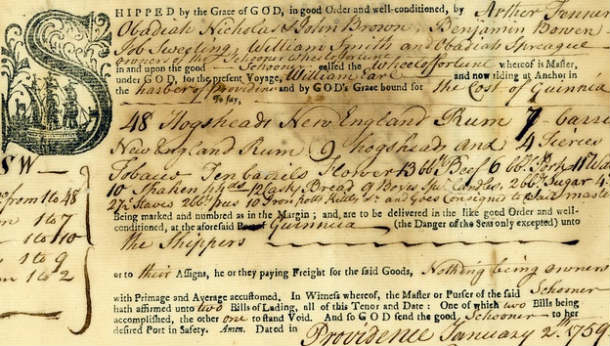 SHIPPED by the Grace of GOD, in good Order and well-conditioned, by Arther Fenner
Obadiah Nicholas & John Brown, Benjamin Bowen
Job Sweeting, William Smith and Obadiah Sprague
owners of the Schooner wheel of fortune
in and upon the good Schooner called the Wheel of fortune whereof is Master,
under GOD, for the present Voyage, William Earl and now riding at Anchor in
the harber of providence and by GOD's Grace bound for the Cost of Guinnia
To say,
48 Hogsheads New England Rum 7 barre
New England Rum 9 hogsheads and 4 Tierces
Tobacco Ten barrels Flower 13 bbls Beef 6 bbls Pork 11
10 Shaken 12 Casks Bread 9 Boxes Candles, 2 bbls Sugar 4
27 Staves 10 Iron potts and Goes Consigned to Said master
SW
from 1 to 48
1 to 7
1 to 10
1 to 9
1 to 2
Being marked and numbred as in the Margin; and, are to be delivered in the like good Order and well-
conditioned, at the aforesaid Port of Guinnia (the Danger of the Seas only excepted) unto
the Shippers
or to their Assigns, he or they paying Freight for the said Goods, Nothing being owners
Schooner
with Primage and Average accustomed. In Witness whereof, the Master or Purser of the said
hath affirmed unto two Bills of Lading, all of this Tenor and Date: One of which two Bills being
accomplished, the other one to stand Void. And so GOD send the good Schooner to her
desired Port in Safety. Amen. Dated in Providence January 2th 1759